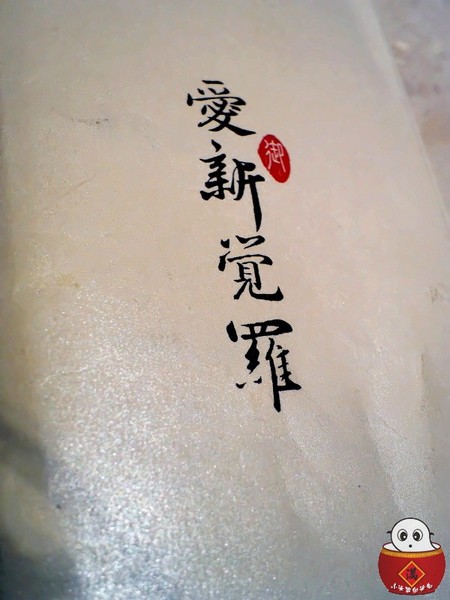 愛新覚羅
御
滿